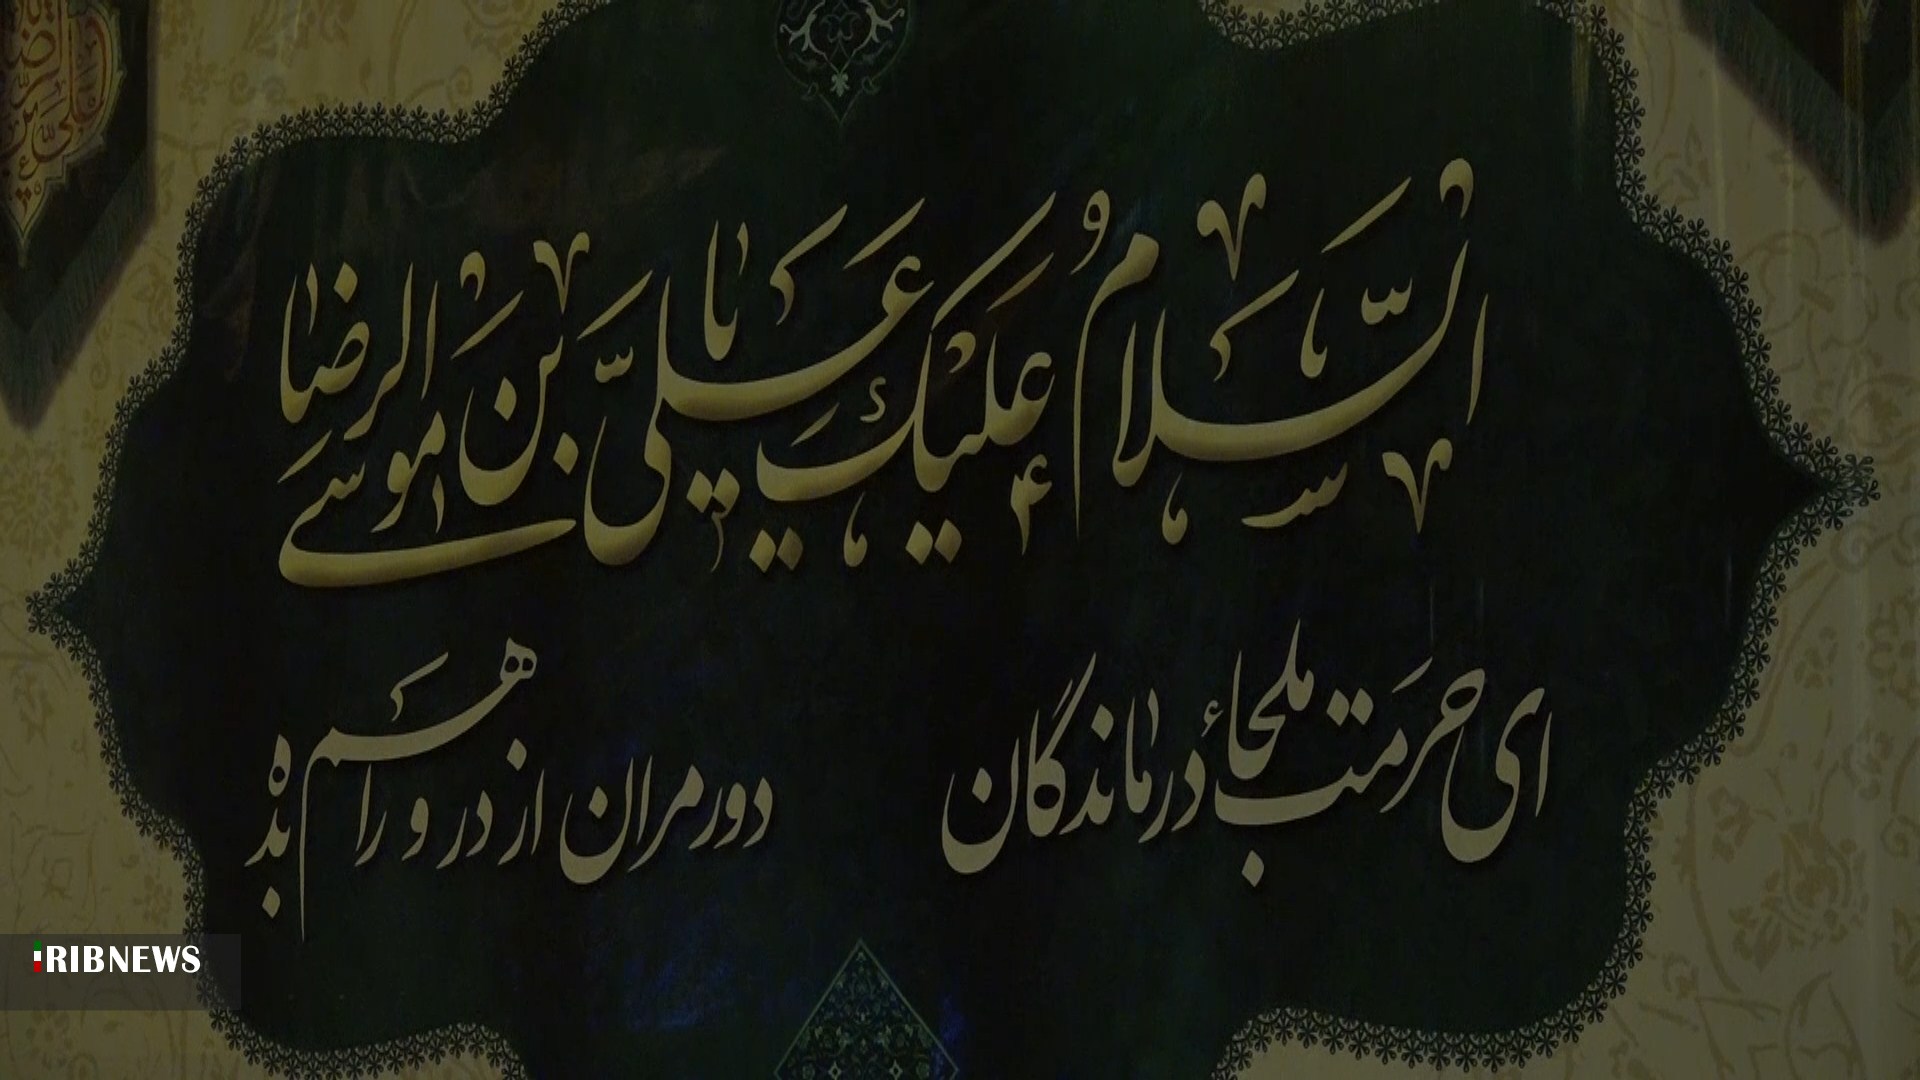 السَّلامُ عَلَیکَ یا عَلیَّ بنَ مُوسَی الرِّضا
ای حرمت ملجأ درماندگان
دور مران از در و راهم بده
IRIBNEWS